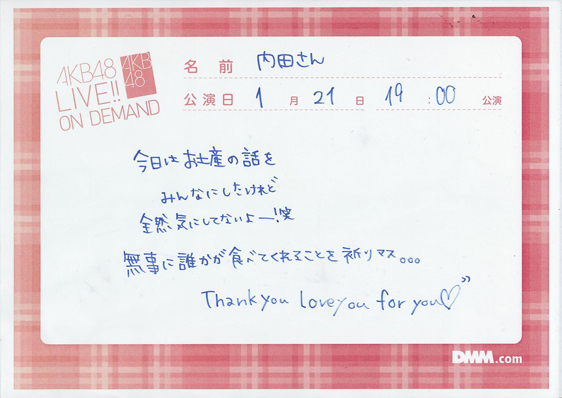 AKB48
LIVE!!
ON DEMAND
AKB
48
名前 内田さん
公演日 1月21日 19:00 公演
今日はお土産の話を
みんなにしたけれど
全然気にしてないよー!笑
無事に誰かが食べてくれることを祈りマス。。。
Thank you love you for you♡”
DMM.com